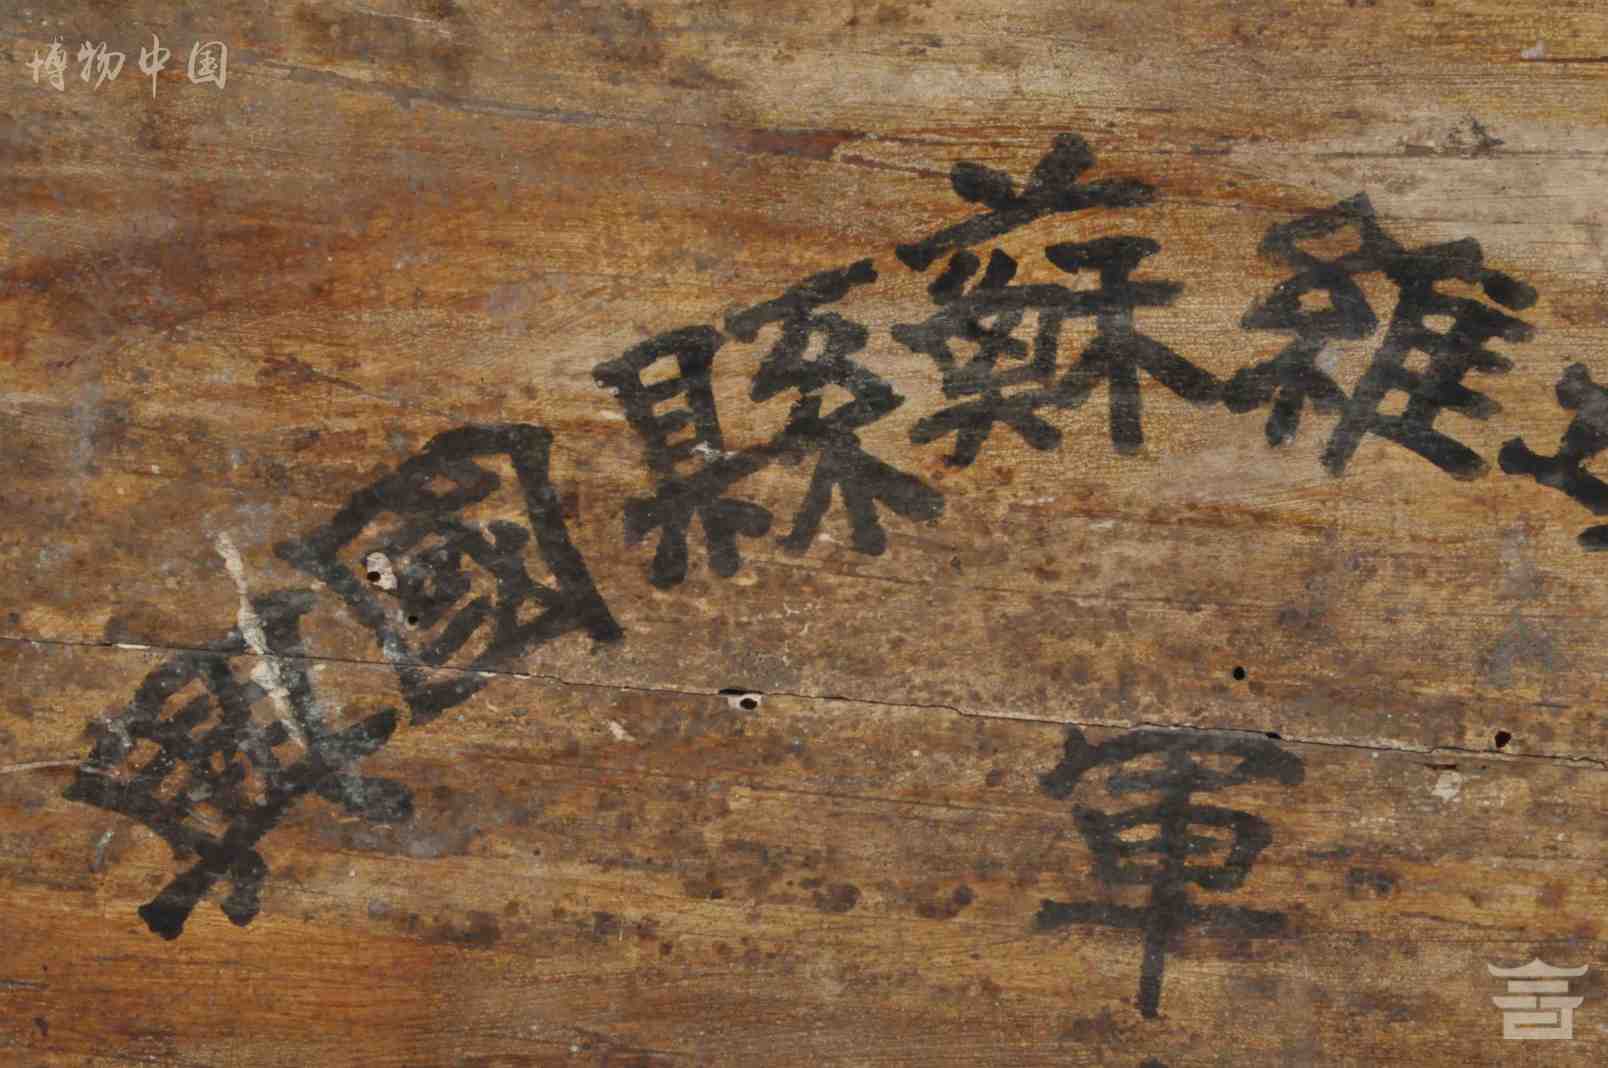 博物中国
興國縣蘇維
軍